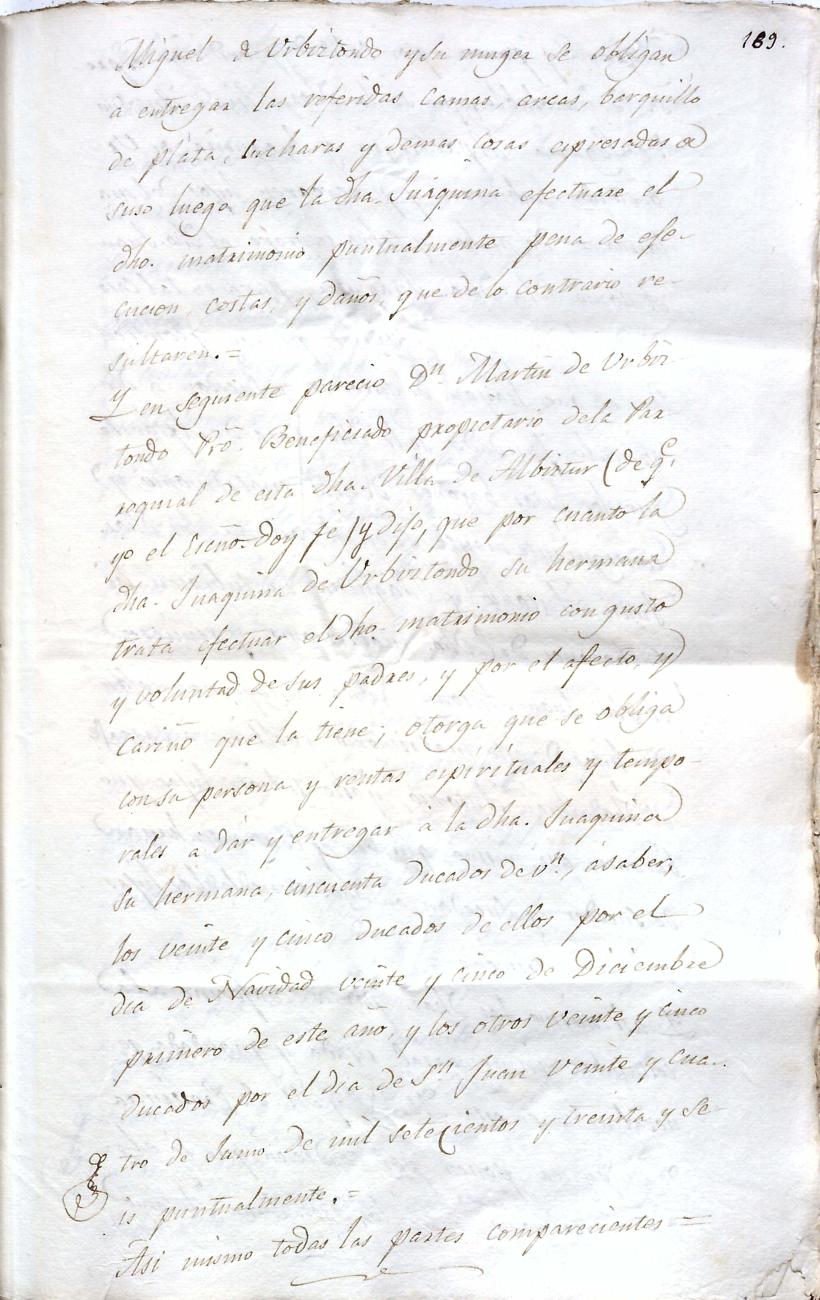 169.
Miguel de Urbiztondo y su muger se obligan
a entregar las referidas camas, arcas, barquillo
de plata, cucharas y demas cosas expresadas de
suso luego que la dha. Juaquina efectuare el
dho. matrimonio puntualmente pena de efe-
cucion, costas, y daños, que de lo contrario re-
sultaren.=
Y en seguiente parecio Dn. Martin de Urbiz-
tondo Pro. Beneficiado propietario dela Par
roquial de esta dha. Villa de Albiztur (de qe.
yo el Escño. doy fe) y dijo, que por cuanto la
dha. Juaquina de Urbiztondo su hermana
trata efectuar el dho. matrimonio con gusto
y voluntad de sus padres, y por el afecto, y
Cariño que la tiene; otorga que se obliga
con su persona y rentas espirituales y tempo-
rales a dár y entregar à la dha. Juaquina
su hermana, cincuenta ducados de vn., à saber,
los veinte y cinco ducados de ellos por el
dia de Navidad veinte y cinco de Diciembre
primero de este año, y los otros veinte y cinco
ducados por el dia de Sn Juan veinte y cua-
tro de Junio de mil setecientos y treinta y se
is puntualmente.=
Asi mismo todas las partes comparecientes =